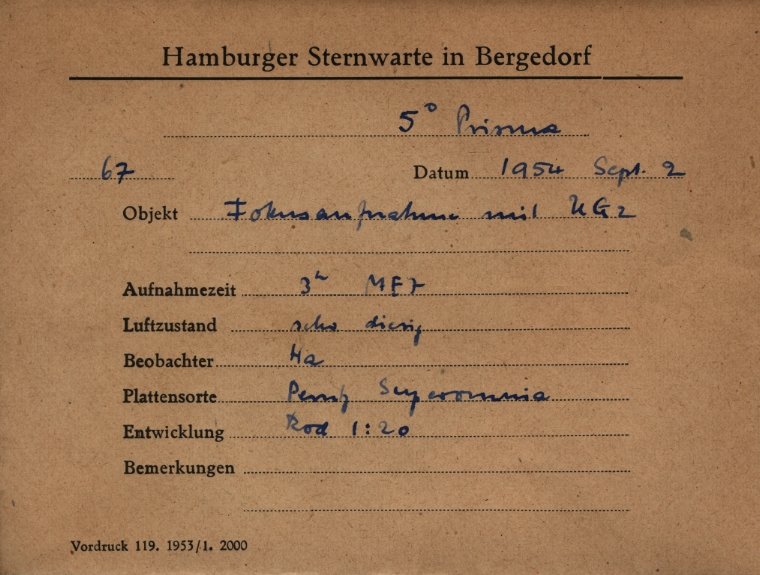 Hamburger Sternwarte in Bergedorf
5° Prisma
67 Datum 1954 Sept. 2
Objekt Fokusaufnahme mit UG2
Aufnahmezeit 3h MEZ
Luftzustand sehr diesig
Beobachter Ha
Plattensorte Perutz Superomnia
Entwicklung Rod 1:20
Bemerkungen
Vordruck 119. 1953/1. 2000